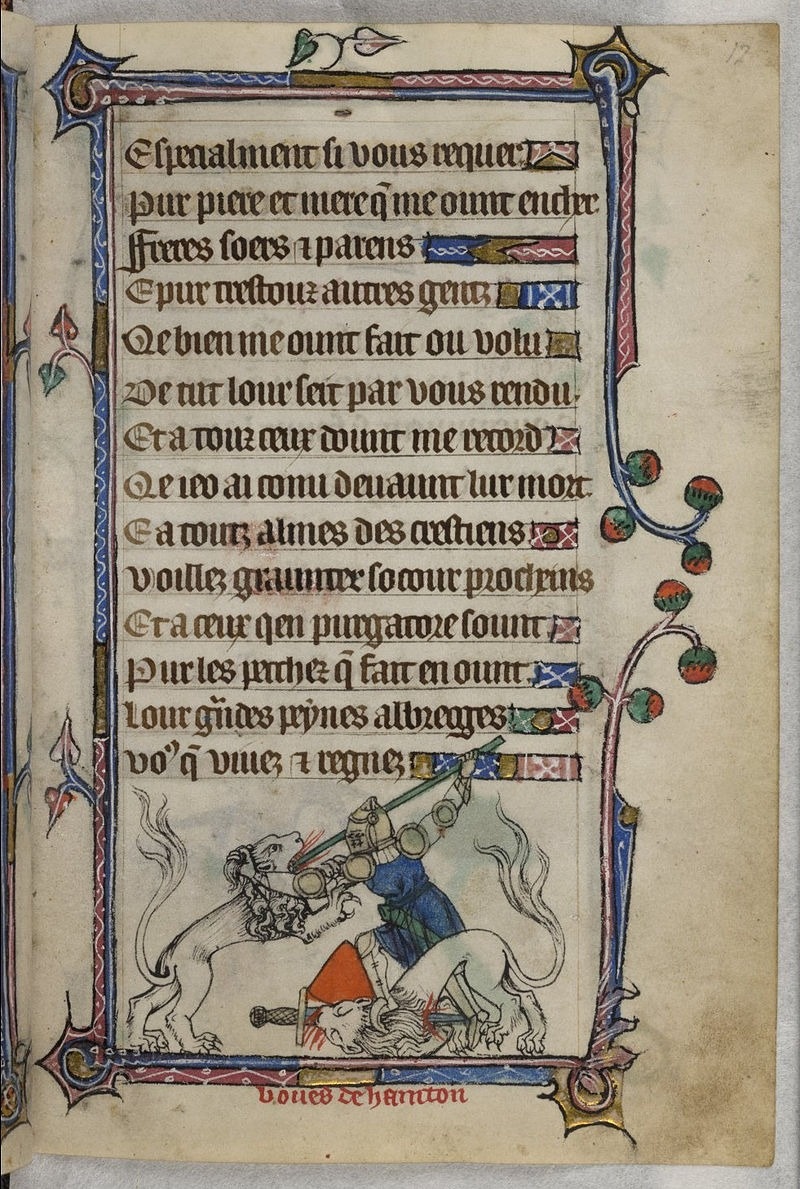 12
Especialment si vous requer
Pur piere et mere q̃ me ount encher
Freres soers ⁊ parens
E pur trestouz autres gentz
Qe bien me ount fait ou volu
De tut lour seit par vous rendu.
Et a touz ceux dount me record
Qe ieo ai conu deuaunt lur mort
E a toutz almes des crestiens
Voillez graunter socour procheins
Et a ceux qen purgatore sount
Pur les pecchez q̃ fait en ount
Lour g̃ndes peynes albregges
voꝰ q̃ viuez ⁊ regnez
boues de hamton